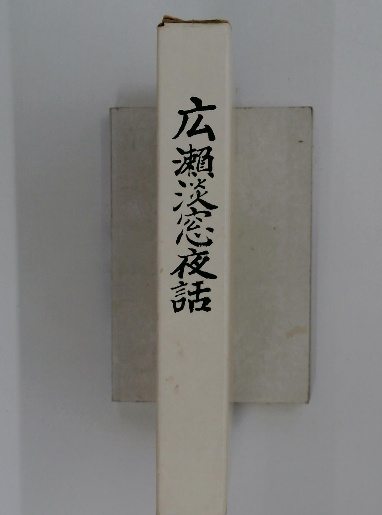 広瀬淡窓夜話